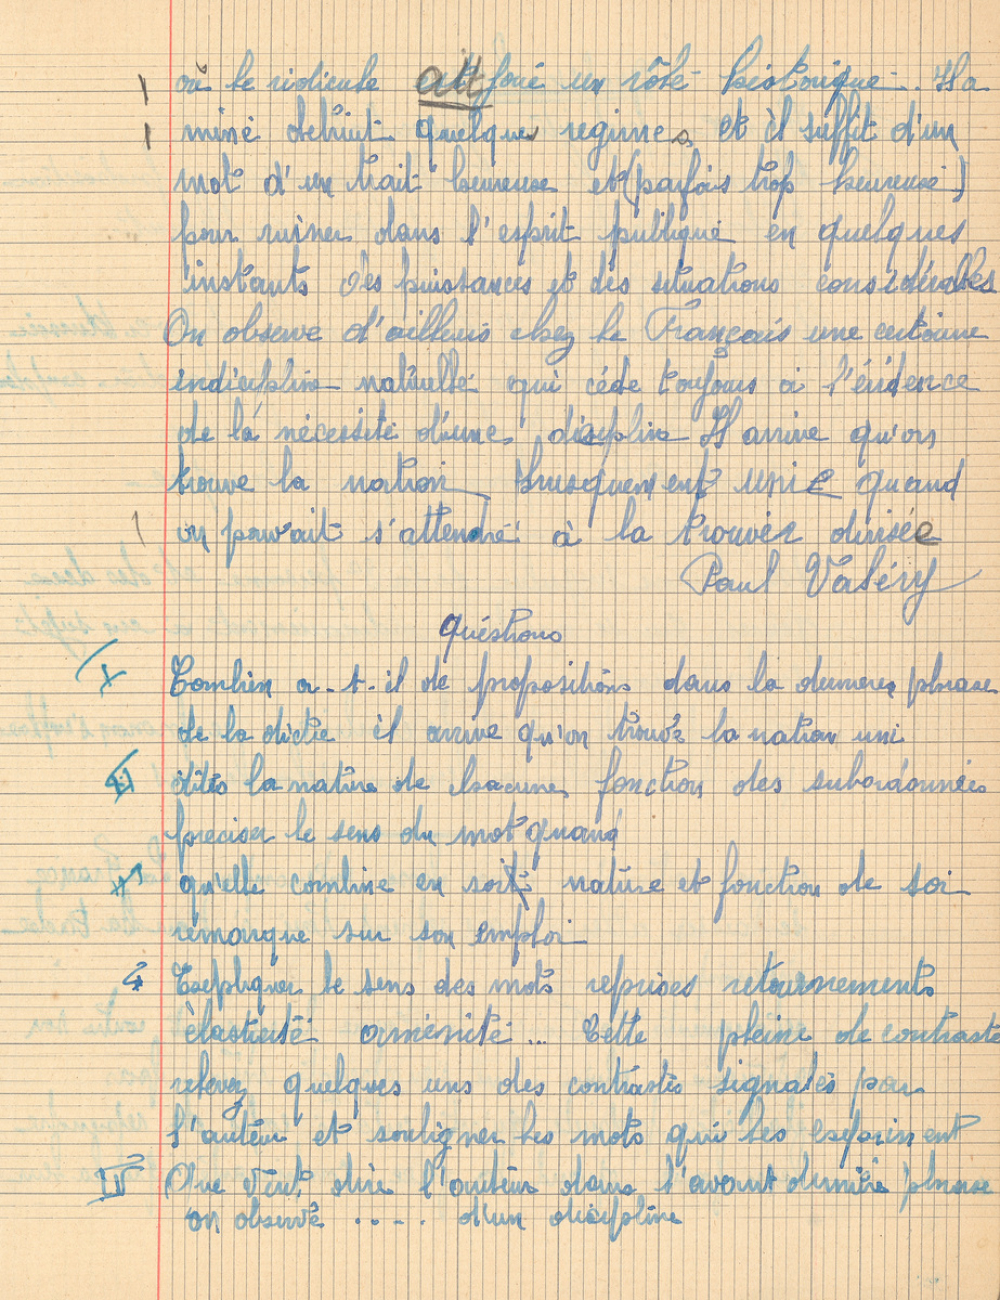 où le ridicule ait joué un rôle historique. Il a
miné detruit quelques regimes et il suffit d'un
mot d'un trait heureuse et (parfois trop heureuse)
pour ruiner dans l'esprit publique en quelques
instants des puissances et des situations considérables
On observe d'ailleurs chez le Français une certaine
indicipline naturelle qui céde toujours à l'évidence
de la nécessité d'une discipline Il arrive qu'on
trouve la nation brusquement unie quand
on pouvait s'attendre à la trouver divisée
Paul Valéry
Questions
I Combien a-t-il de propositions dans la derniere phrase
de la dictée il arrive qu'on trouve la nation uni
II dites la nature de chacune, fonction des subordonnées
préciser le sens du mot quand
qu'elle combine en soit nature et fonction de soi
remarque sur son emploi
4 Expliquer le sens des mots reprises retournements
élasticité aménité... Cette pleine de contraste
relevez quelques uns des contrastes signales par
l'auteur et souligner les mots qui les expriment
IV Que veut dire l'auteur dans l'avant derniére phrase
on observe ..... d'un discipline